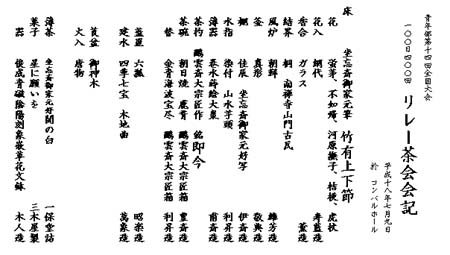 青年部第十四回全国大会
一〇〇日四〇〇回 リレー茶会会記
平成十八年七月九日
於 コンベルホール
床 坐忘斎家元筆 竹有上下節
花 蛍草、不如帰、河原撫子、桔梗、虎杖
花入 網代 寿藍造
香合 ガラス 蓋造
結界 桐 南禅寺山門古瓦
風炉 朝鮮 雄芳造
釜 真形 敬典造
棚 住辰 坐忘斎家元好写 伊斎造
水指 染付 山水芋頭 利昇造
薄器 春水蒔絵大棗 甫斎造
茶杓 鵬雲斎大宗匠作 銘 即今
茶碗 朝日焼 鹿背 鵬雲斎大宗匠箱 豊斎造
替 金青海波宝尽 鵬雲斎大宗匠箱 利昇造
蓋置 六瓢 昭楽造
建水 四季七宝 木地曲 萬象造
莨盆 御神木
火入 唐物
薄茶 坐忘斎御家元好 開の白 一保堂詰
菓子 星に願いを 三木屋製
器 俊成青磁陰陽刻象嵌草花文鉢 木人造